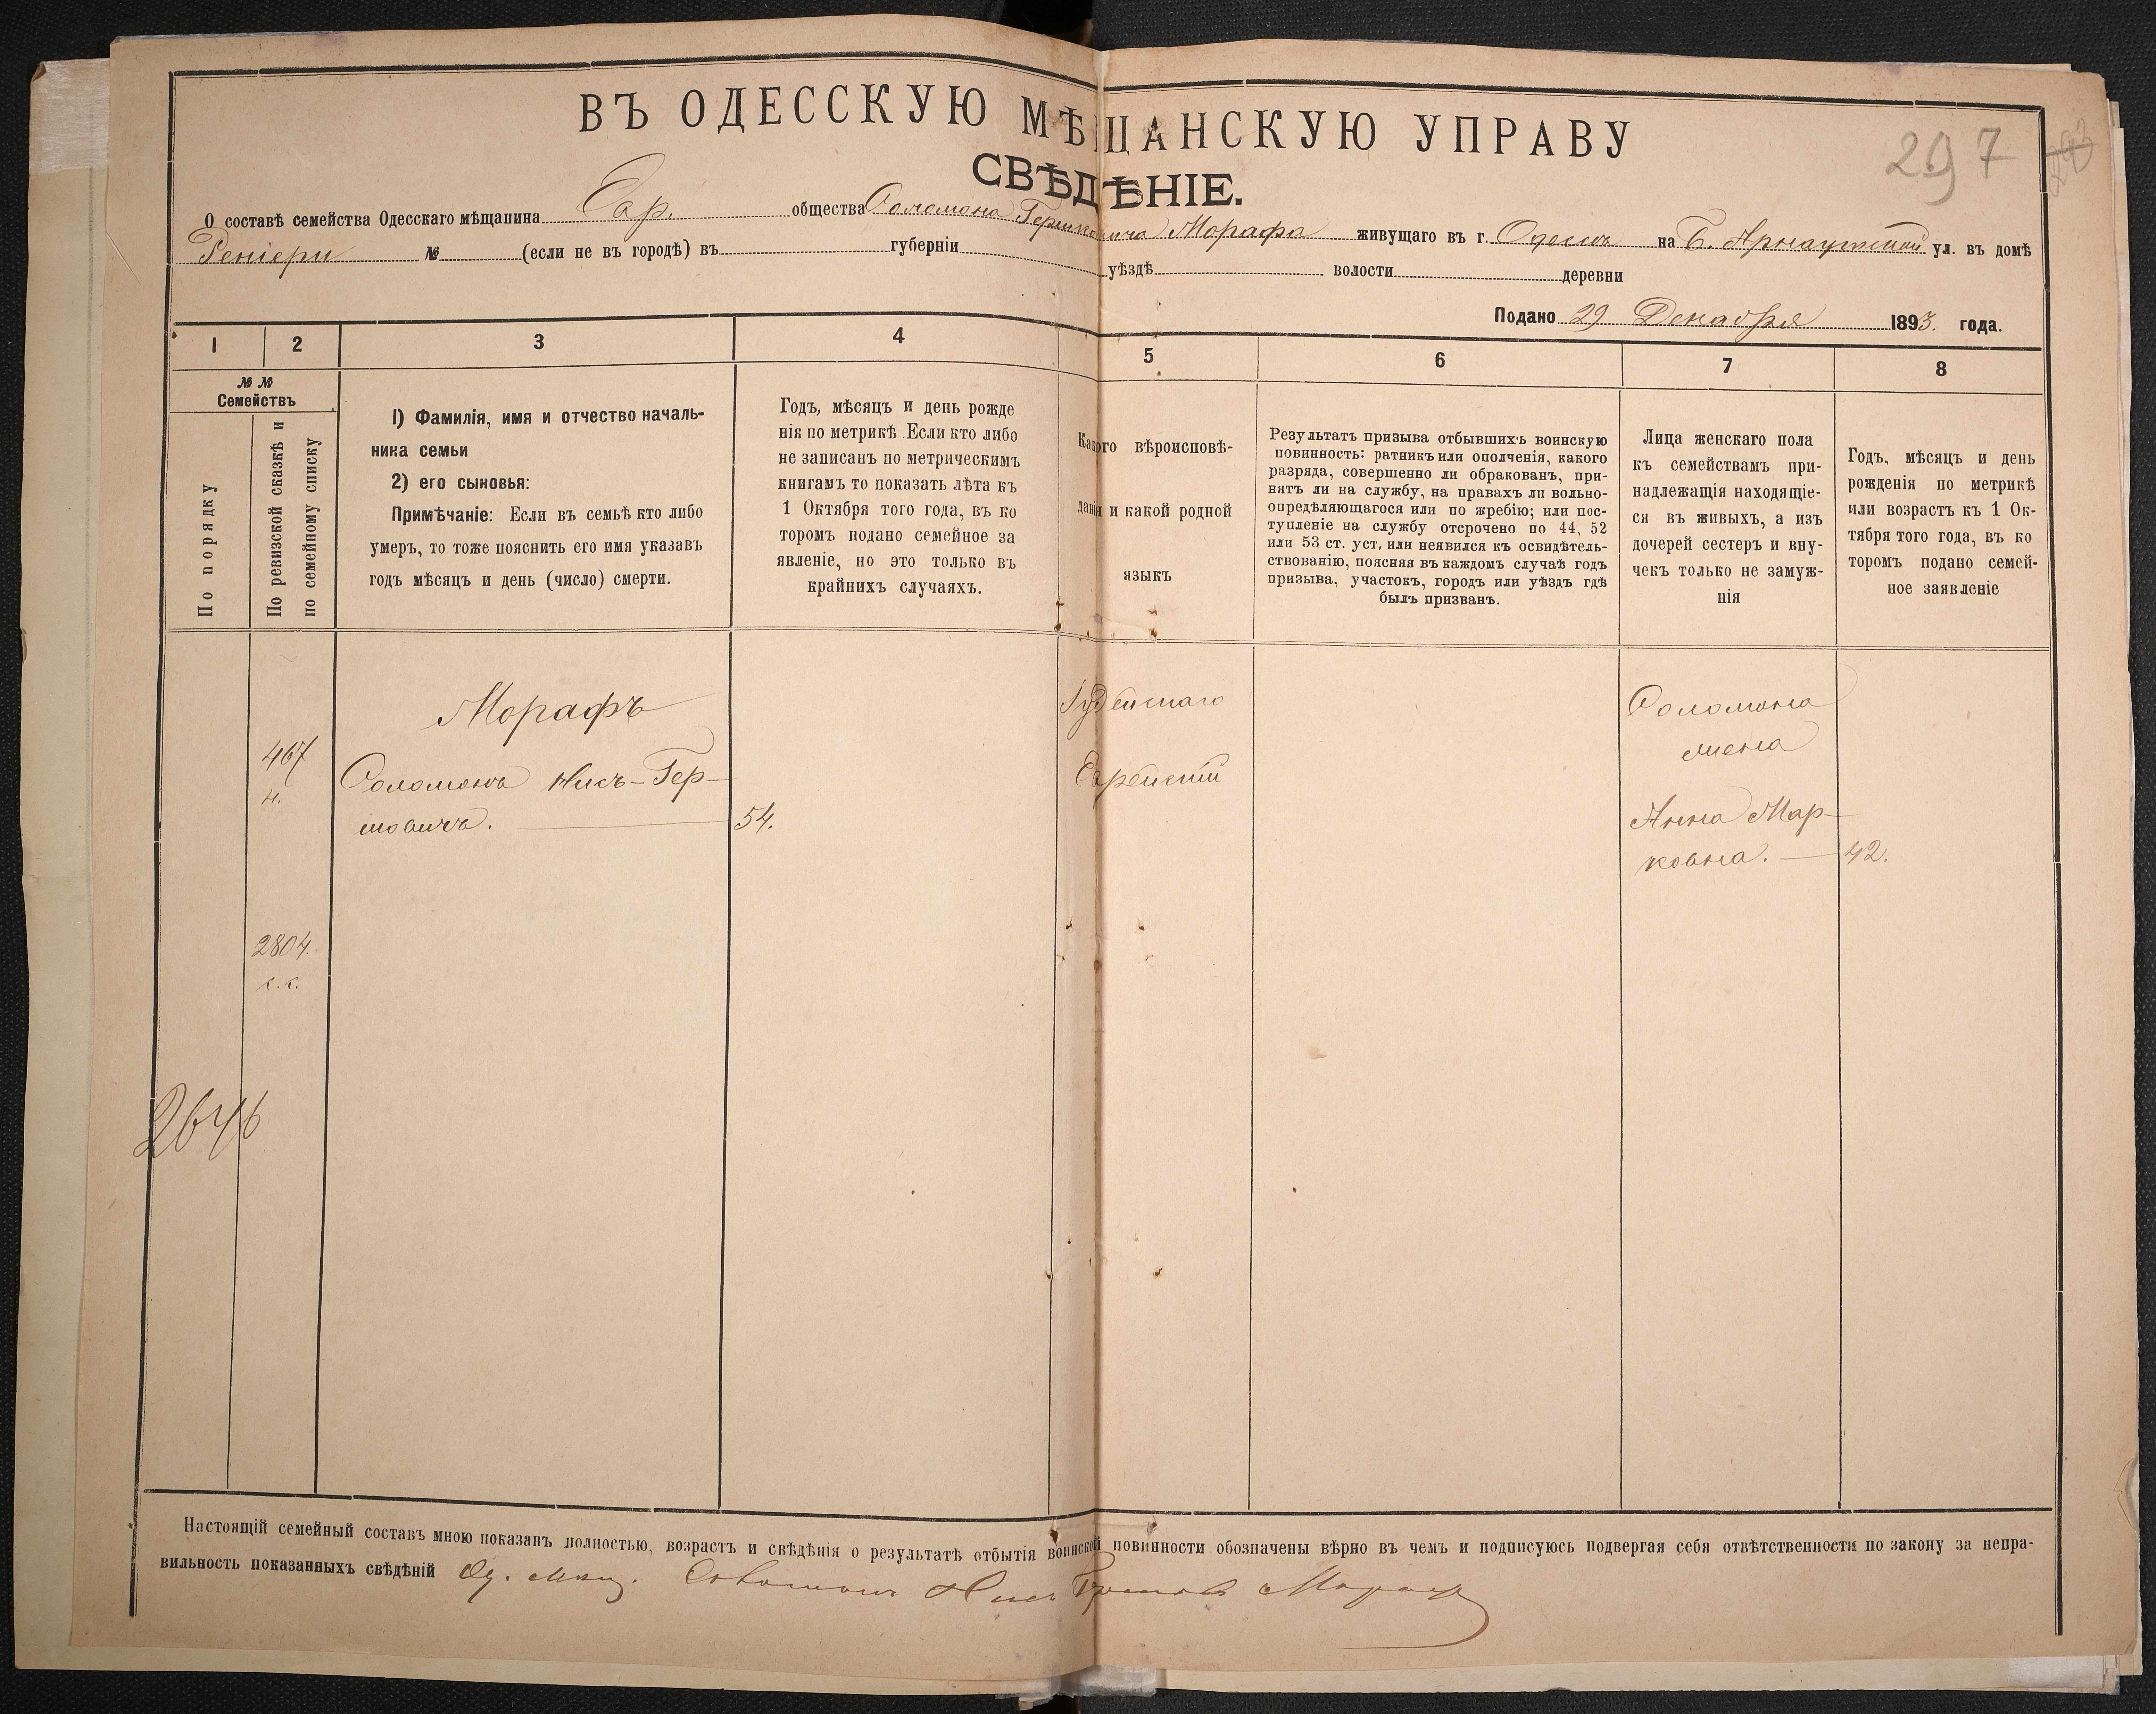 ВЪ ОДЕССКУЮ МѢЩАНСКУЮ УПРАВУ
297
СВѢДѢНІЕ.
О составѣ семейства Одесскаго мѣщанина Евр. общества Соломона Гершковича Морафа живущаго въ г. Одессѣ на Б. Арнаутской ул. въ домѣ
Реніери № (если не въ городѣ) въ губерніи уѣздѣ волости деревни
Подано 29 Декабря 1893. года.
1 2 3 4 5 6 7 8
№ №
Семействъ
По порядку
По ревизской сказкѣ и
по семейному списку
1) Фамилія, имя и отчество началь-
ника семьи
2) его сыновья:
Примѣчаніе: Если въ семьѣ кто либо
умеръ, то тоже пояснить его имя указавъ
годъ мѣсяцъ и день (число) смерти.
Годъ, мѣсяцъ и день рожде
нія по метрикѣ. Если кто либо
не записанъ по метрическимъ
книгамъ то показать лѣта къ
1 Октября того года, въ ко
торомъ подано семейное за
явленіе, но это только въ
крайнихъ случаяхъ.
Какого вѣроисповѣ-
данія и какой родной
языкъ
Результатъ призыва отбывшихъ воинскую
повинность: ратникъ или ополченія, какого
разряда, совершенно ли обракованъ, при-
нятъ ли на службу, на правахъ ли вольно-
опредѣляющагося или по жребію; или пос-
тупленіе на службу отсрочено по 44, 52
или 53 ст. уст. или неявился къ освидѣтель-
ствованію, поясняя въ каждомъ случаѣ годъ
призыва, участокъ, городъ или уѣздъ гдѣ
былъ призванъ.
Лица женскаго пола
къ семействамъ при-
надлежащія находящіе-
ся въ живыхъ, а изъ
дочерей сестеръ и вну-
чекъ только не замуж-
нія
Годъ, мѣсяцъ и день
рожденія по метрикѣ
или возрастъ къ 1 Ок-
тября того года, въ ко
торомъ подано семей-
ное заявленіе
467
н.
2804.
с. с.
2646
Морафъ
Соломонъ Нисъ-Гер-
шовичъ. 54.
Іудейскаго
Еврейскій
Соломона
жена
Анна Мар-
ковна. 42.
Настоящій семейный составъ мною показанъ полностью, возрастъ и свѣдѣнія о результатѣ отбытія воинской повинности обозначены вѣрно въ чемъ и подписуюсь подвергая себя отвѣтственности по закону за непра-
вильность показанныхъ свѣдѣній Од. мѣщ. Соломонъ Нисъ Гершовъ Морафъ